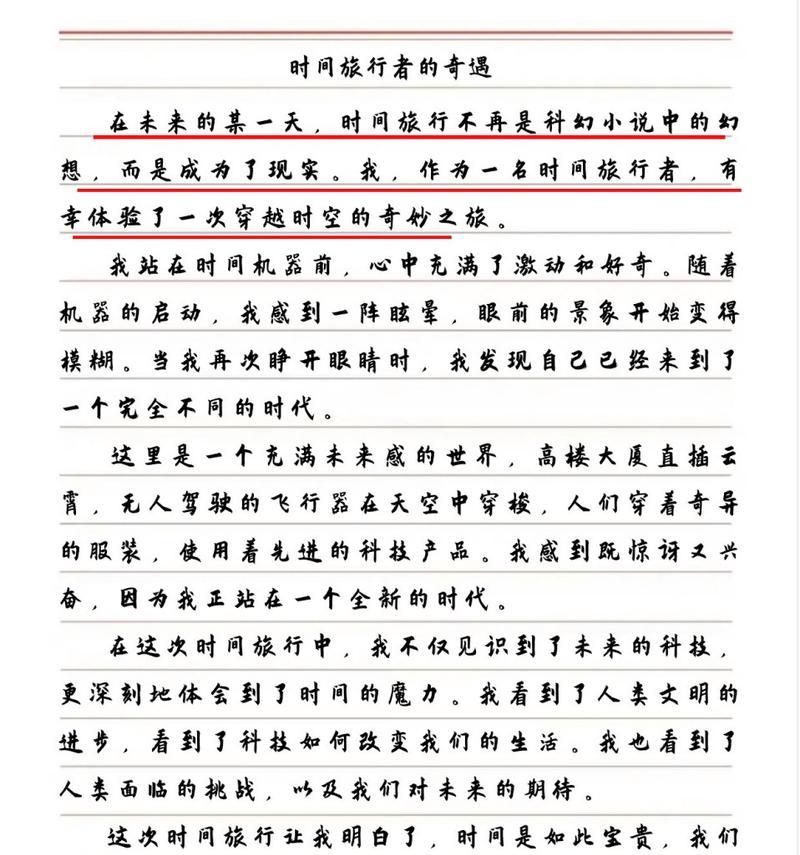 时间旅行者的奇遇
在未来的某一天，时间旅行不再是科幻小说中的幻
想，而是成为了现实。我，作为一名时间旅行者，有
幸体验了一次穿越时空的奇妙之旅。
我站在时间机器前，心中充满了激动和好奇。随着
机器的启动，我感到一阵眩晕，眼前的景象开始变得
模糊。当我再次睁开眼睛时，我发现自己已经来到了
一个完全不同的时代。
这里是一个充满未来感的世界，高楼大厦直插云
霄，无人驾驶的飞行器在天空中穿梭，人们穿着奇异
的服装，使用着先进的科技产品。我感到既惊讶又兴
奋，因为我正站在一个全新的时代。
在这次时间旅行中，我不仅见识到了未来的科技，
更深刻地体会到了时间的魔力。我看到了人类文明的
进步，看到了科技如何改变我们的生活。我也看到了
人类面临的挑战，以及我们对未来的期待。
这次时间旅行让我明白了，时间是如此宝贵，我们